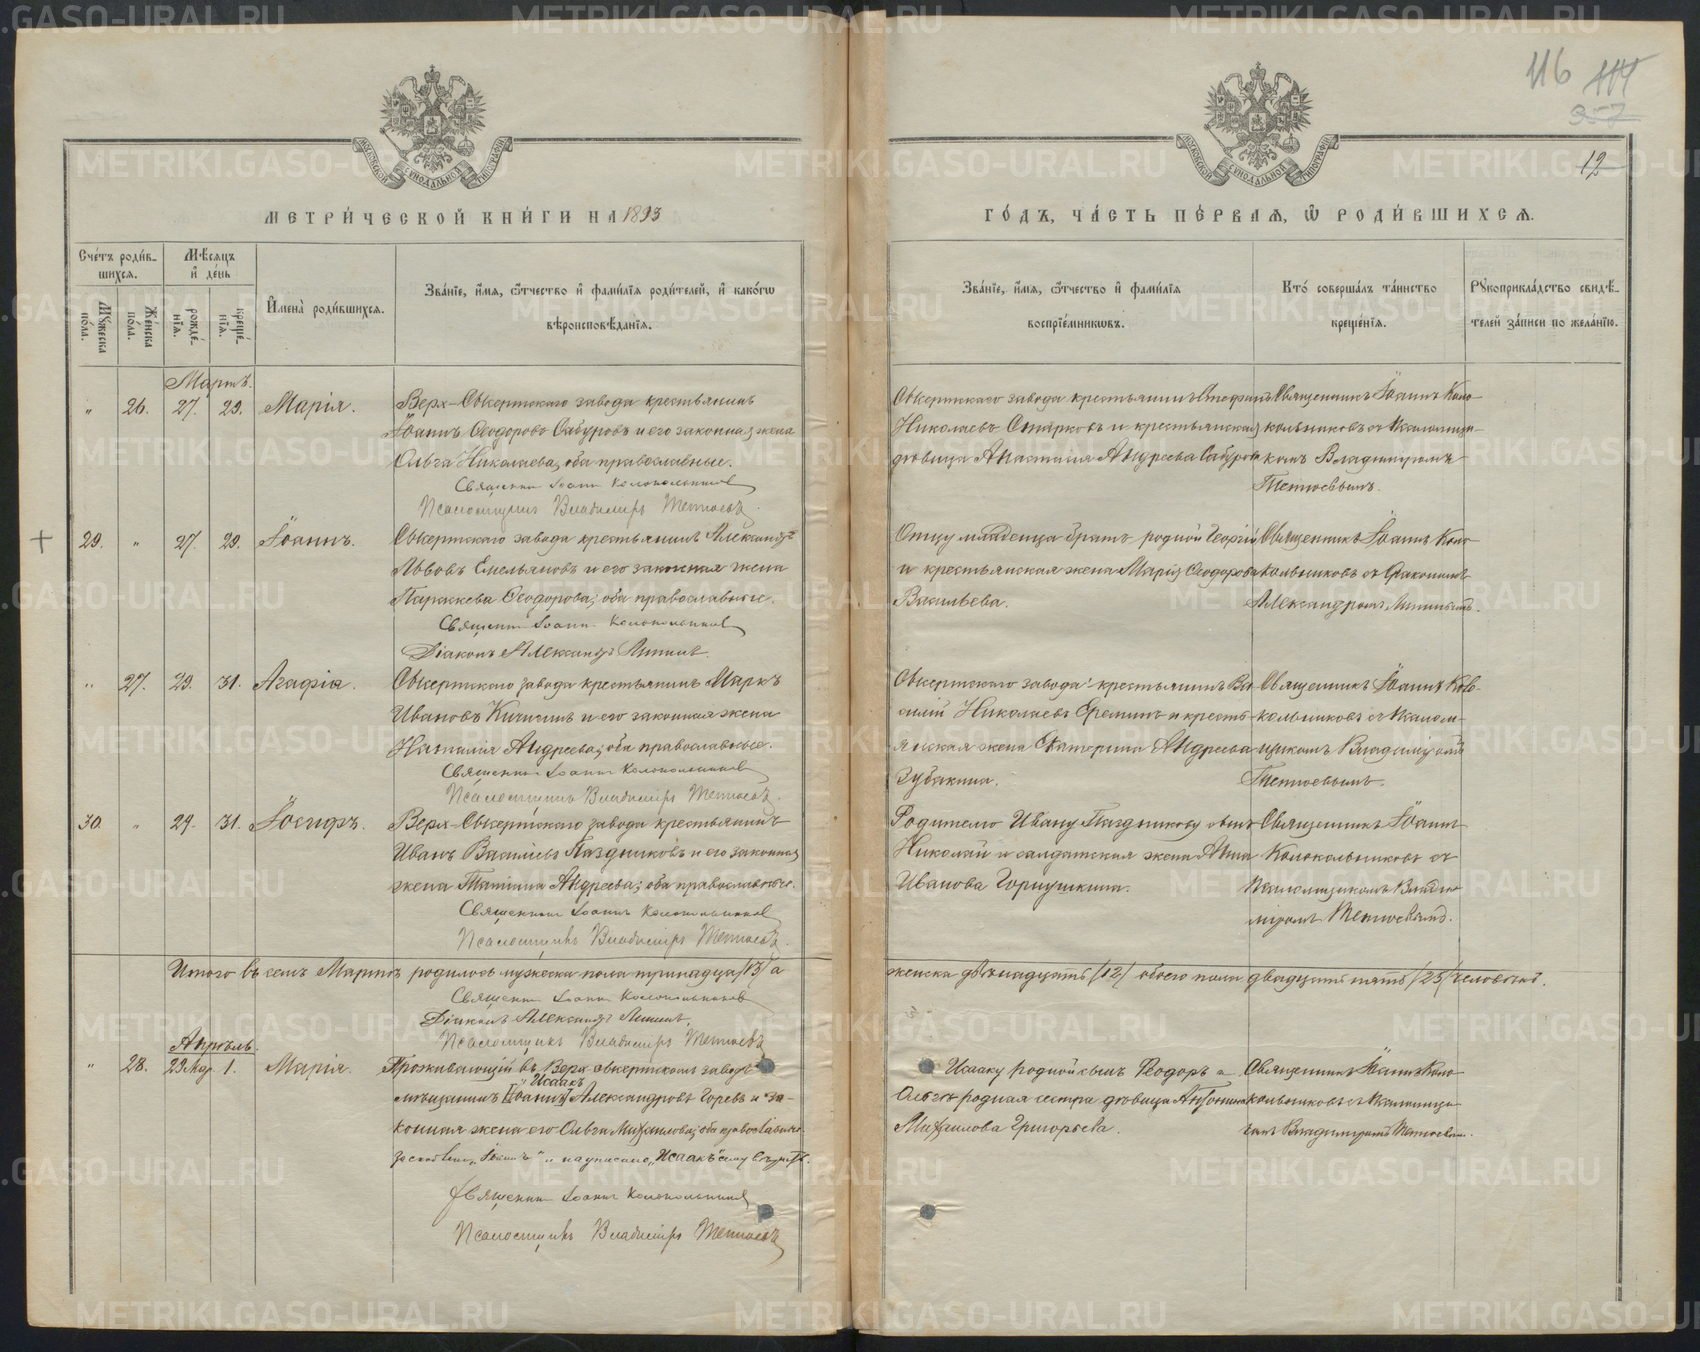 METRIKI.GASO-URAL.RU
116 114
357
12
МЕТРИ́ЧЕСКОЙ КНИ́ГИ НА 1893
ГО́ДЪ, ЧА́СТЬ ПЕ́РВАЯ, Ѿ РОДИ́ВШИХСЯ.
Сче́тъ роди́в-
шихся.
Му́жеска по́ла.
Же́нска по́ла.
Мѣ́сяцъ и҆ де́нь
рожде́нїя.
креще́нїя.
И҆мена̀ роди́вшихся.
Зва́нїе, и҆́мя, ѻ҆́тчество и҆ фами́лїя роди́телей, и҆ како́гѡ
вѣроисповѣ́данїя.
Зва́нїе, и҆́мя, ѻ҆́тчество и҆ фами́лїя
воспрїе́мникѡвъ.
Кто́ соверша́лъ та́инство
креще́нїя.
Рꙋкоприкла́дство свидѣ́-
телей за́писи по жела́нїю.
Мартъ.
" 26. 27. 29. Марія.
Верх-Сысертскаго завода крестьянинъ
Іоаннъ Ѳеодоровъ Сабуровъ и его законная жена
Ольга Николаева, оба православные.
Священникъ Іоаннъ Колокольниковъ
Псаломщикъ Владиміръ
Сысертскаго завода крестьянинъ Стефанъ
Николаевъ Старковъ и крестьянская
дѣвица Анастасія Андреева Сабурова
Священникъ Іоаннъ Коло-
кольниковъ съ псаломщи-
комъ Владиміромъ
29. " 27. 29. Іоаннъ.
Сысертскаго завода крестьянинъ Александръ
Львовъ Емельяновъ и его законная жена
Параскева Ѳеодорова; оба православные.
Священникъ Іоаннъ Колокольниковъ
Діаконъ Александръ
Отцу младенца братъ родной Георгій
и крестьянская жена Марія Ѳеодорова
Васильева.
Священникъ Іоаннъ Коло-
кольниковъ съ діакономъ
Александромъ
" 27. 29. 31. Агафія.
Сысертскаго завода крестьянинъ Маркъ
Ивановъ Кичигинъ и его законная жена
Наталія Андреева; оба православные.
Священникъ Іоаннъ Колокольниковъ
Псаломщикъ Владиміръ
Сысертскаго завода крестьянинъ Ва-
силій Николаевъ Ереминъ и кресть-
янская жена Екатерина Андреева
Зубакина.
Священникъ Іоаннъ Коло-
кольниковъ съ псалом-
щикомъ Владиміромъ
30. " 29. 31. Іосифъ.
Верх-Сысертскаго завода крестьянинъ
Иванъ Васильевъ Паздниковъ и его законная
жена Татіана Андреева; оба православные.
Священникъ Іоаннъ Колокольниковъ
Псаломщикъ Владиміръ
Родителю Ивану Паздникову сынъ
Николай и солдатская жена Анна
Иванова Горнушкина.
Священникъ Іоаннъ
Колокольниковъ съ
псаломщикомъ Влади-
міромъ
Итого въ семъ Мартѣ родилось мужеска пола тринадцать /13/ а
женска двѣнадцать /12/ обоего пола двадцать пять /25/ человѣкъ.
Священникъ Іоаннъ Колокольниковъ
Діаконъ Александръ
Псаломщикъ Владиміръ
Апрѣль.
" 28. 29 Мар. 1. Марія.
Проживающій въ Верх-Сысертскомъ заводѣ
"Исаакъ
мѣщанинъ [Іоаннъ] Александровъ Горевъ и за-
конная жена его Ольга Михаилова; оба православные.
"Іоаннъ" надписано "Исаакъ"
Священникъ Іоаннъ Колокольниковъ
Псаломщикъ Владиміръ
Исааку родной сынъ Ѳеодоръ а
Ольгѣ родная сестра дѣвица Антонина
Михаилова Григорьева.
Священникъ Іоаннъ Коло-
кольниковъ съ псаломщи-
комъ Владиміромъ